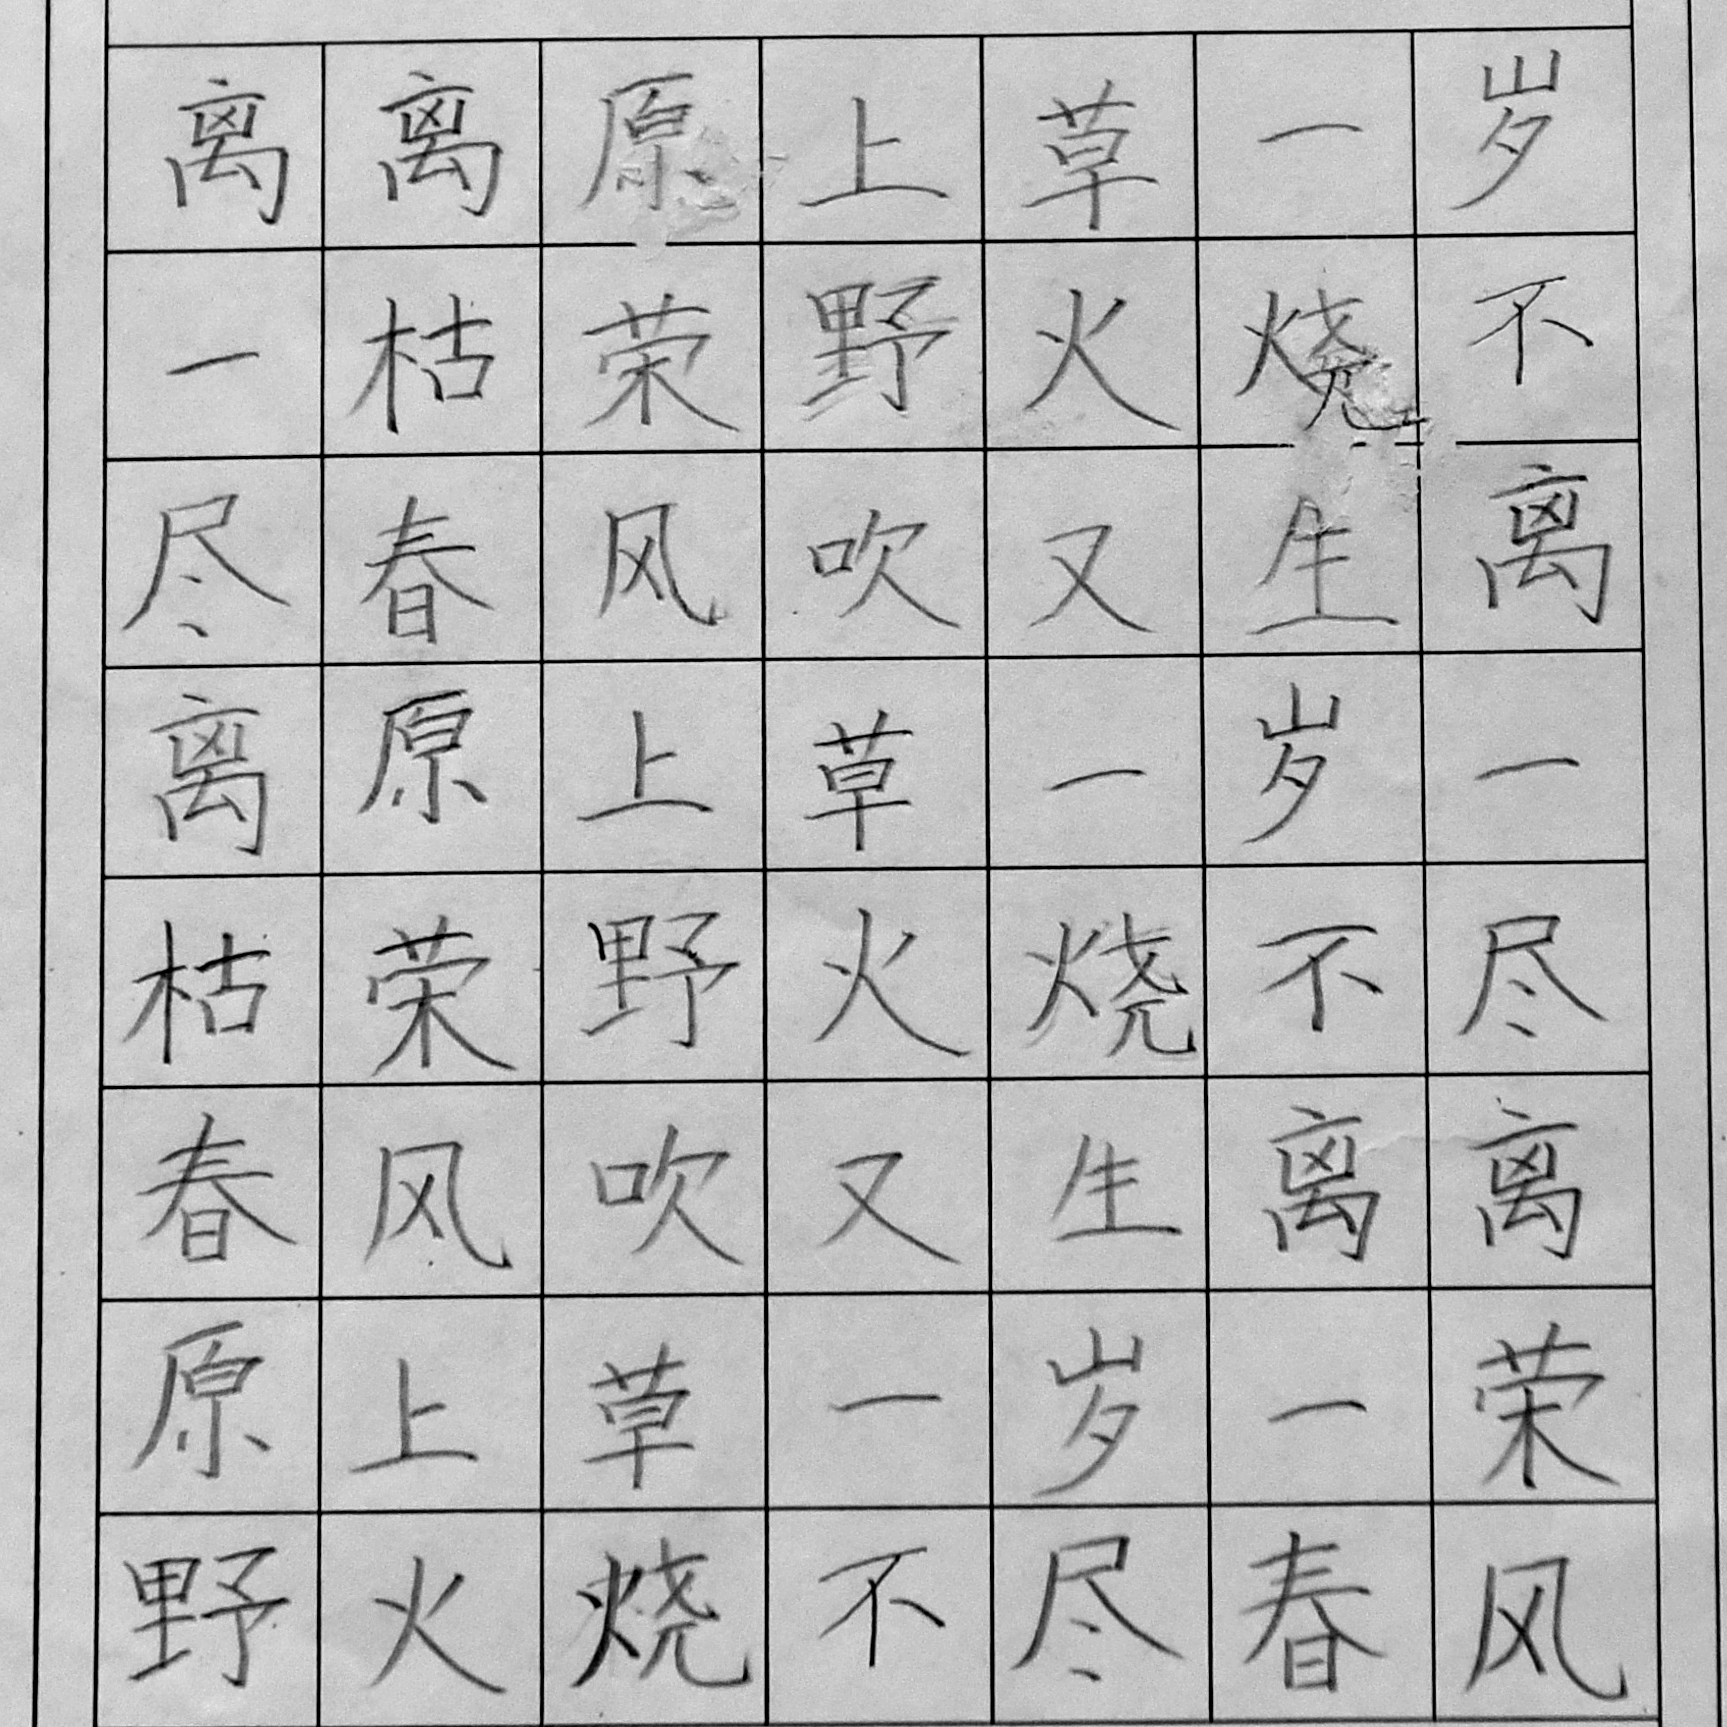 离离原上草一岁
一枯荣野火烧不
尽春风吹又生离
离原上草一岁一
枯荣野火烧不尽
春风吹又生离离
原上草一岁一荣
野火烧不尽春风